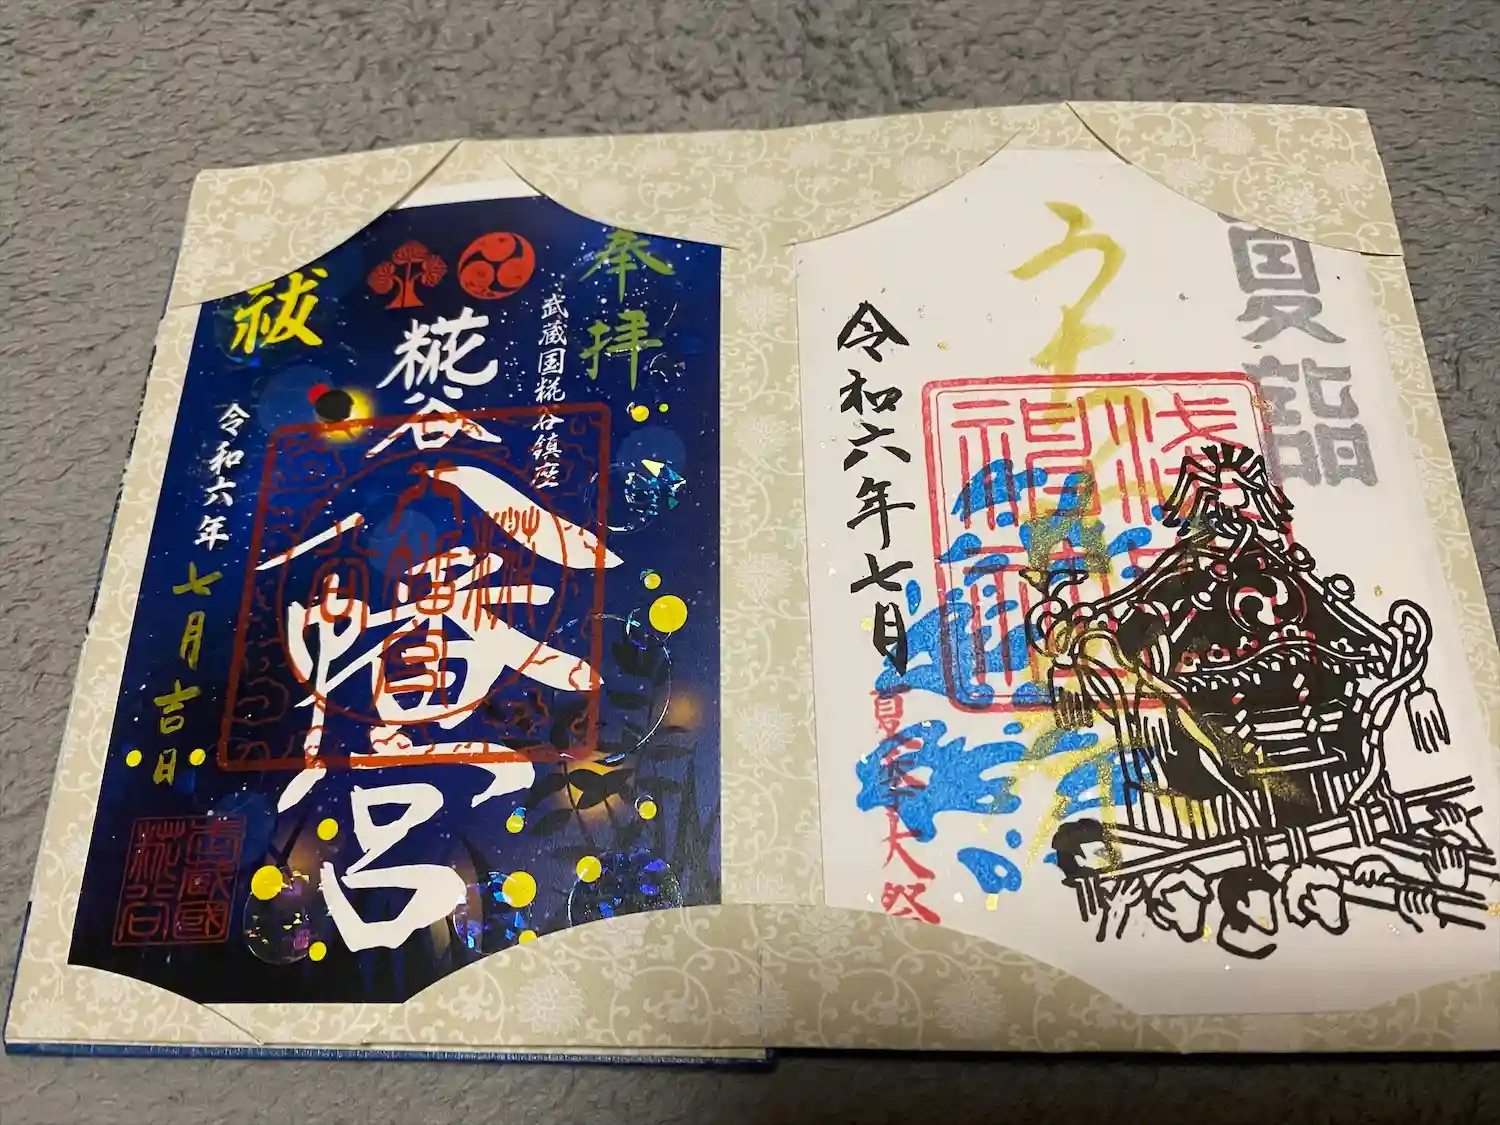 夏詣
浅間
神社
令和六年七月
夏季大祭
奉拝
武蔵国糀谷鎮座
糀谷
八幡宮
祓
令和六年
七月吉日
武蔵國
糀谷